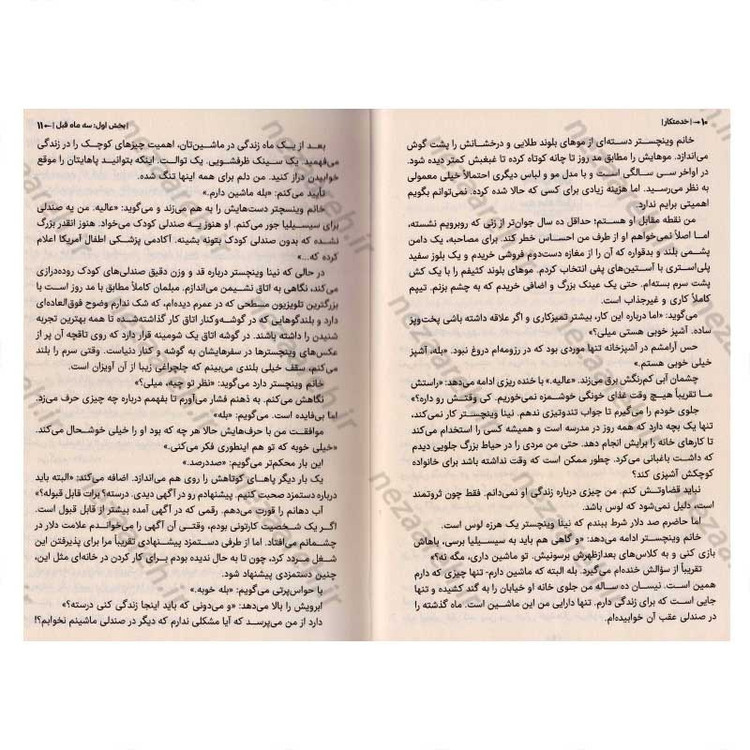 ۱۰ → | خدمتکار |
خانم وینچستر دسته‌ای از موهای بلوند طلایی و درخشانش را پشت گوش
می‌اندازد. موهایش را مطابق مد روز تا چانه کوتاه کرده تا غبغبش کمتر دیده شود.
در اواخر سی سالگی است و با مدل مو و لباس دیگری احتمالاً خیلی معمولی
به نظر می‌رسید. اما هزینه زیادی برای کسی که حالا شده کرده. نمی‌توانم بگویم
اهمیتی برایم ندارد.
من نقطه مقابل او هستم؛ حداقل ده سال جوان‌تر از زنی که روبرویم نشسته،
اما اصلاً نمی‌خواهم او از طرف من احساس خطر کند. برای مصاحبه، یک دامن
پشمی بلند و بدقواره که آن را از مغازه دست‌دوم فروشی خریدم و یک بلوز سفید
پلی‌استری با آستین‌های پفی انتخاب کردم. موهای بلوند کثیفم را با یک کش
پشت سرم بسته‌ام. حتی یک عینک بزرگ و اضافی خریدم که به چشم بزنم. تیپم
کاملاً کاری و غیرجذاب است.
می‌گوید: «اما درباره این کار، بیشتر تمیزکاری و اگر علاقه داشته باشی پخت‌وپز
ساده. آشپز خوبی هستی میلی؟»
حس آرامشم در آشپزخانه تنها موردی بود که در رزومه‌ام دروغ نبود. «بله، آشپز
خیلی خوبی هستم.»
چشمان آبی کم‌رنگش برق می‌زند. «عالیه.» با خنده ریزی ادامه می‌دهد: «راستش
ما تقریباً هیچ وقت غذای خونگی خوشمزه نمی‌خوریم. کی وقتش رو داره؟»
جلوی خودم را می‌گیرم تا جواب تندوتیزی ندهم. نینا وینچستر کار نمی‌کند،
تنها یک بچه دارد که همه روز در مدرسه است و همیشه کسی را استخدام می‌کند
تا کارهای خانه را برایش انجام دهد. حتی من مردی را در حیاط بزرگ جلویی دیدم
که داشت باغبانی می‌کرد. چطور ممکن است که وقت نداشته باشد برای خانواده
کوچکش آشپزی کند؟
نباید قضاوتش کنم. من چیزی درباره زندگی او نمی‌دانم. فقط چون ثروتمند
است، دلیل نمی‌شود که لوس باشد.
اما حاضرم صد دلار شرط ببندم که نینا وینچستر یک هرزه لوس است.
خانم وینچستر ادامه می‌دهد: «و گاهی هم باید به سیسیلیا برسی، باهاش
بازی کنی و به کلاس‌های بعدازظهرش برسونیش. تو ماشین داری، مگه نه؟»
تقریباً از سؤالش خنده‌ام می‌گیرد. بله البته که ماشین دارم- تنها چیزی که دارم
همین است. نیسان ده ساله من جلوی خانه او خیابان را به گند کشیده و تنها
جایی است که برای زندگی دارم. تنها دارایی من این ماشین است. ماه گذشته را
در صندلی عقب آن خوابیده‌ام.
| بخش اول: سه ماه قبل | ← ۱۱
بعد از یک ماه زندگی در ماشین‌تان، اهمیت چیزهای کوچک را در زندگی
می‌فهمید. یک سینک ظرفشویی. یک توالت. اینکه بتوانید پاهایتان را موقع
خوابیدن دراز کنید. من دلم برای همه اینها تنگ شده.
تأیید می‌کنم: «بله ماشین دارم.»
خانم وینسچتر دست‌هایش را به هم می‌زند و می‌گوید: «عالیه. من یه صندلی
برای سیسیلیا جور می‌کنم. او هنوز یه صندلی کودک می‌خواد. هنوز انقدر بزرگ
نشده که بدون صندلی کودک بتونه بشینه. آکادمی پزشکی اطفال آمریکا اعلام
کرده که...»
در حالی که نینا وینچستر درباره قد و وزن دقیق صندلی‌های کودک روده‌درازی
می‌کند، نگاهی به اتاق نشیمن می‌اندازم. مبلمان کاملاً مطابق با مد روز است با
بزرگترین تلویزیون مسطحی که در عمرم دیده‌ام، که شک ندارم وضوح فوق‌العاده‌ای
دارد و بلندگوهایی که در گوشه‌وکنار اتاق کار گذاشته‌شده تا همه بهترین تجربه
شنیدن را داشته باشند. در گوشه اتاق یک شومینه قرار دارد که روی تاقچه آن پر از
عکس‌های وینچسترها در سفرهایشان به گوشه و کنار دنیاست. وقتی سرم را بلند
می‌کنم، سقف خیلی بلندی دارد که چلچراغی زیبا از آن آویزان است.
خانم وینچستر دارد می‌گوید: «نظر تو چیه، میلی؟»
نگاهش می‌کنم. به ذهنم فشار می‌آورم تا بفهمم درباره چه چیزی حرف می‌زد.
اما بی‌فایده است. می‌گویم: «بله»
موافقت من با حرف‌هایش حالا هر چه که بود او را خیلی خوشحال می‌کند.
«خیلی خوبه که تو هم اینطوری فکر می‌کنی.»
این بار محکم‌تر می‌گویم: «صددرصد.»
یک بار دیگر پاهای کوتاهش را روی هم می‌اندازد. اضافه می‌کند: «البته باید
درباره دستمزد صحبت کنیم. پیشنهادم رو در آگهی دیدی. درسته؟ برات قابل قبوله؟»
آب دهانم را قورت می‌دهم. رقمی که در آگهی آمده بیشتر از قابل قبول است.
اگر یک شخصیت کارتونی بودم، وقتی آن آگهی را می‌خواندم علامت دلار در
چشمانم می‌افتاد. اما از طرفی دستمزد پیشنهادی تقریباً مرا برای پذیرفتن این
شغل مردد کرد، چون تا به حال ندیده بودم برای کار کردن در خانه‌ای مثل این،
چنین دستمزدی پیشنهاد شود.
با حواس‌پرتی می‌گویم: «بله خوبه.»
ابرویش را بالا می‌دهد: «و می‌دونی که باید اینجا زندگی کنی درسته؟»
دارد از من می‌پرسد که آیا مشکلی ندارم که دیگر در صندلی ماشینم نخوابم؟!